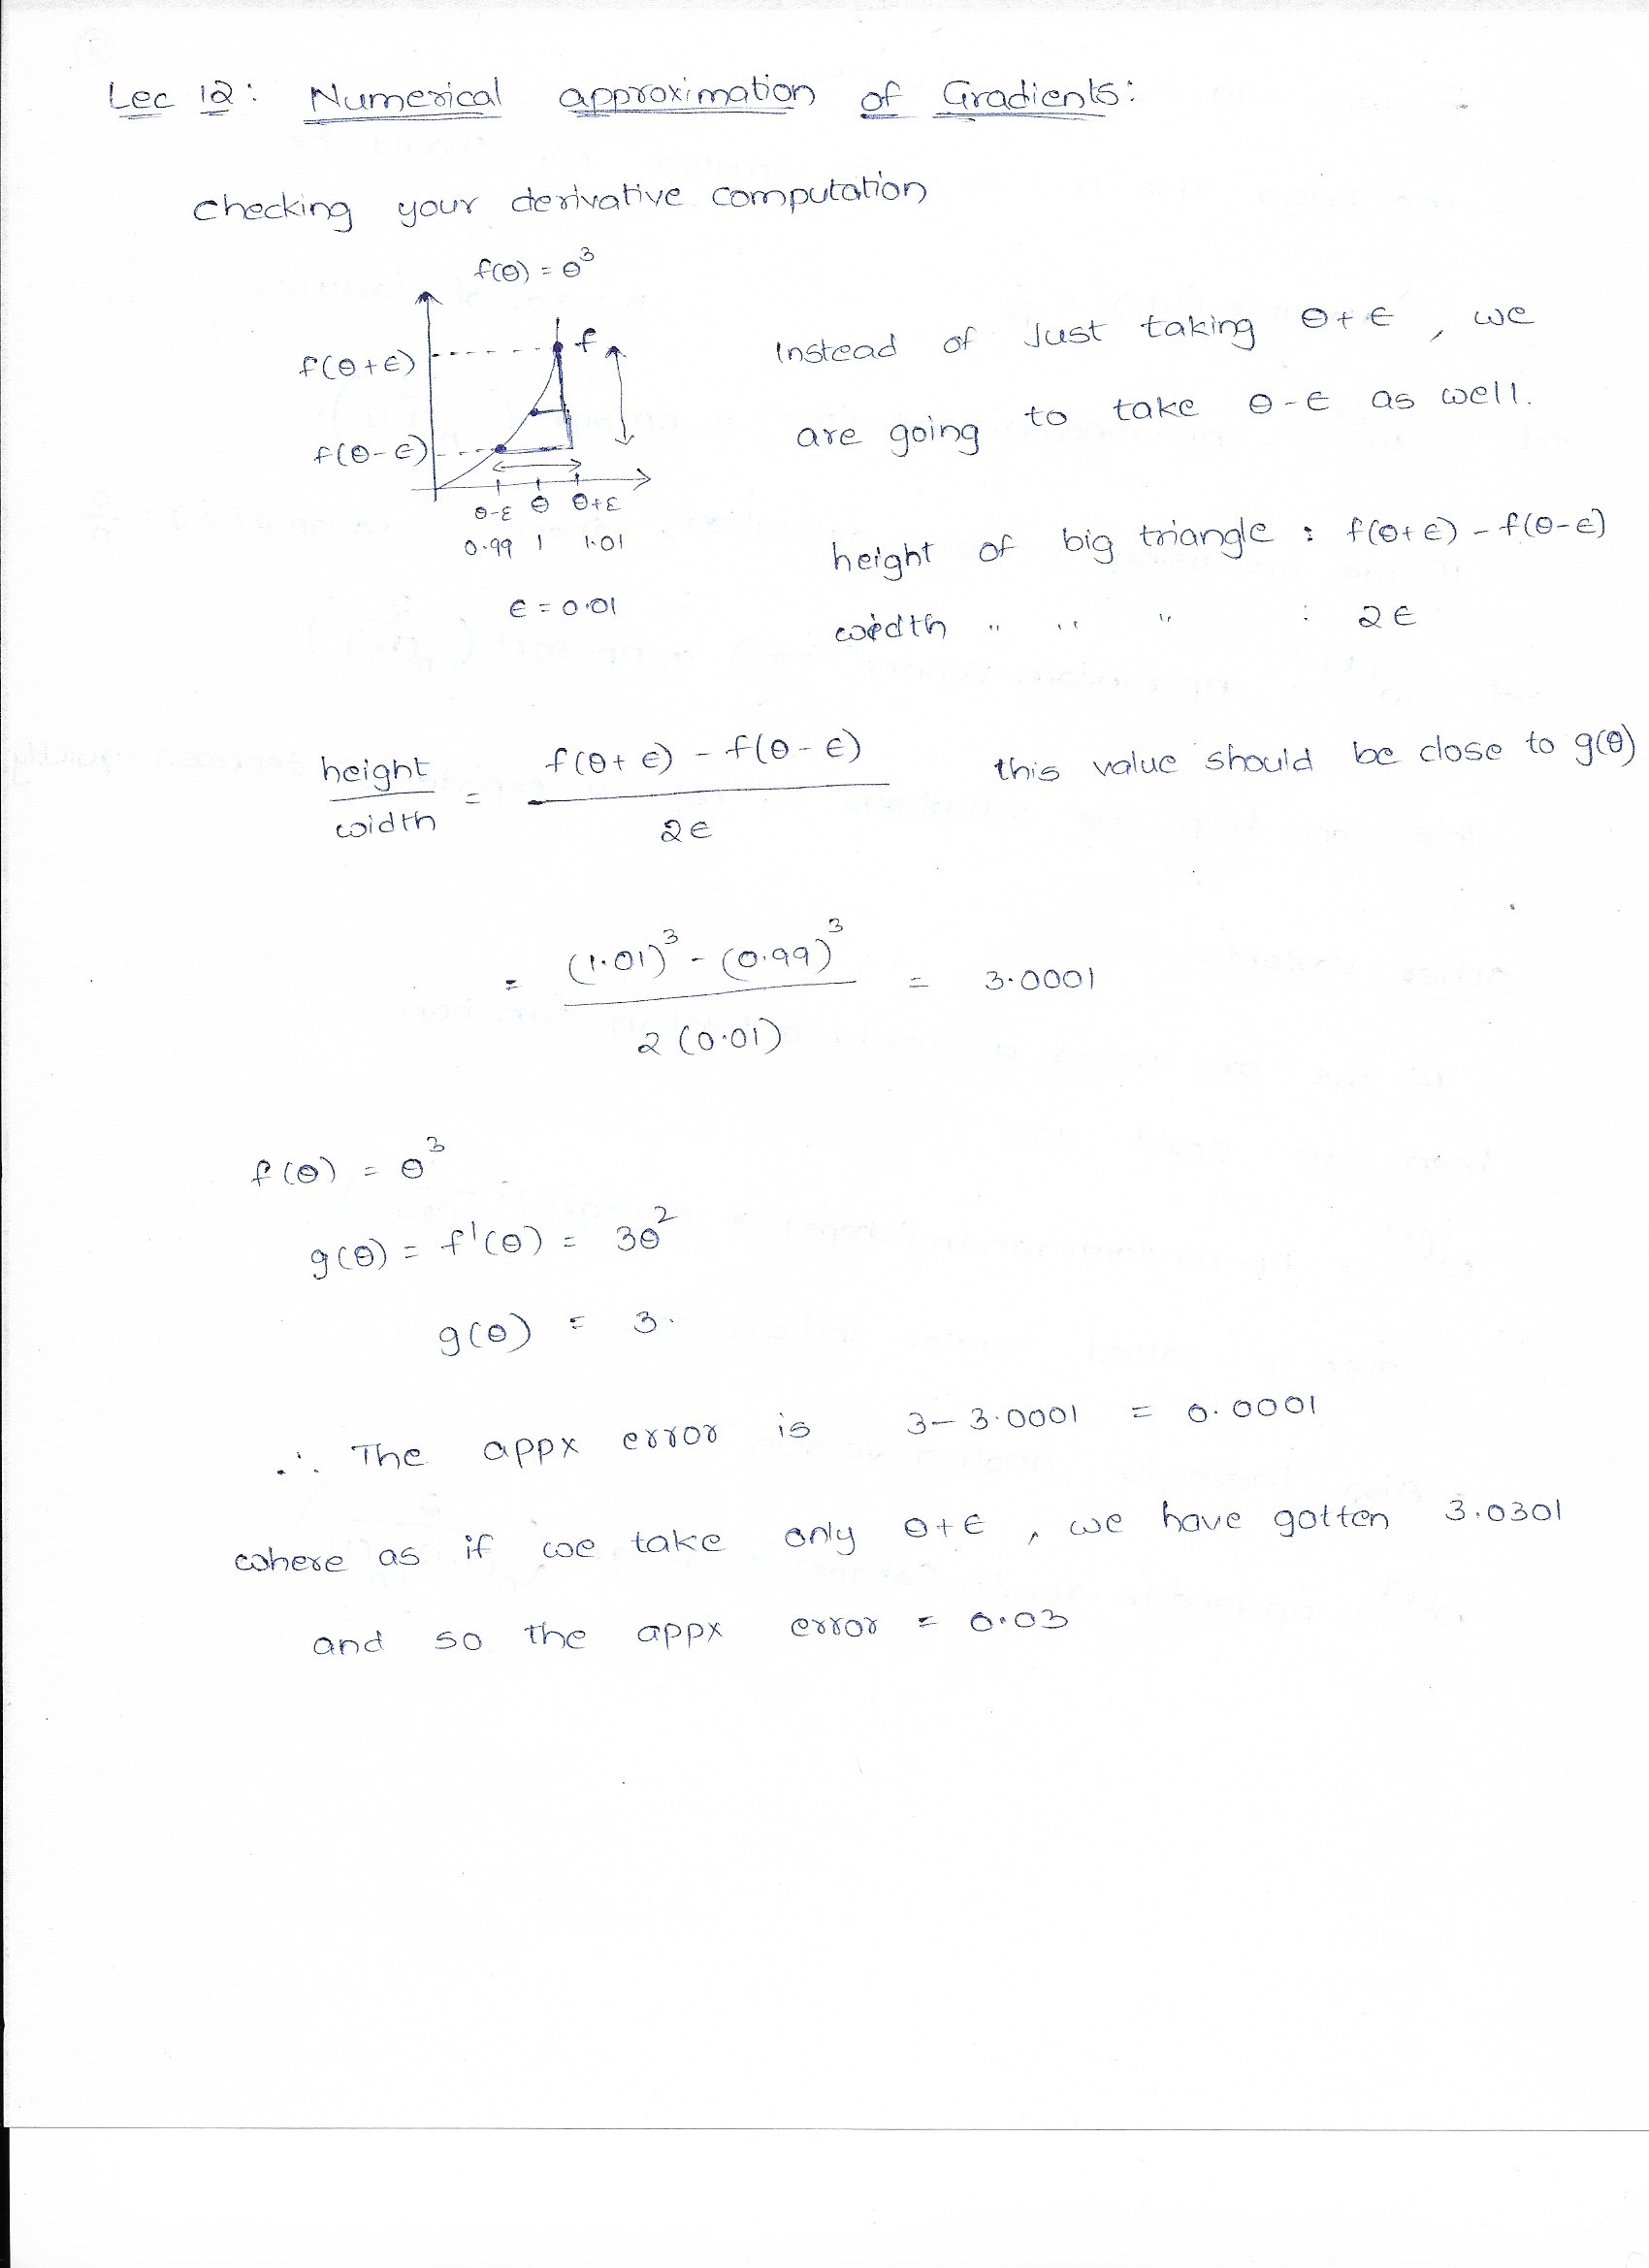 Lec 12: Numerical approximation of Gradients:
checking your derivative computation
f(θ) = θ³
f(θ+ϵ)
f
f(θ-ϵ)
θ-ε θ θ+ε
0.99 1 1.01
ϵ = 0.01
Instead of Just taking θ+ϵ, we
are going to take θ-ϵ as well.
height of big triangle : f(θ+ϵ) - f(θ-ϵ)
width " " " : 2ϵ
height / width = f(θ+ϵ) - f(θ-ϵ) / 2ϵ this value should be close to g(θ)
= (1.01)³ - (0.99)³ / 2(0.01) = 3.0001
f(θ) = θ³
g(θ) = f'(θ) = 3θ²
g(θ) = 3.
∴ The appx error is 3-3.0001 = 0.0001
where as if we take only θ+ϵ, we have gotten 3.0301
and so the appx error = 0.03